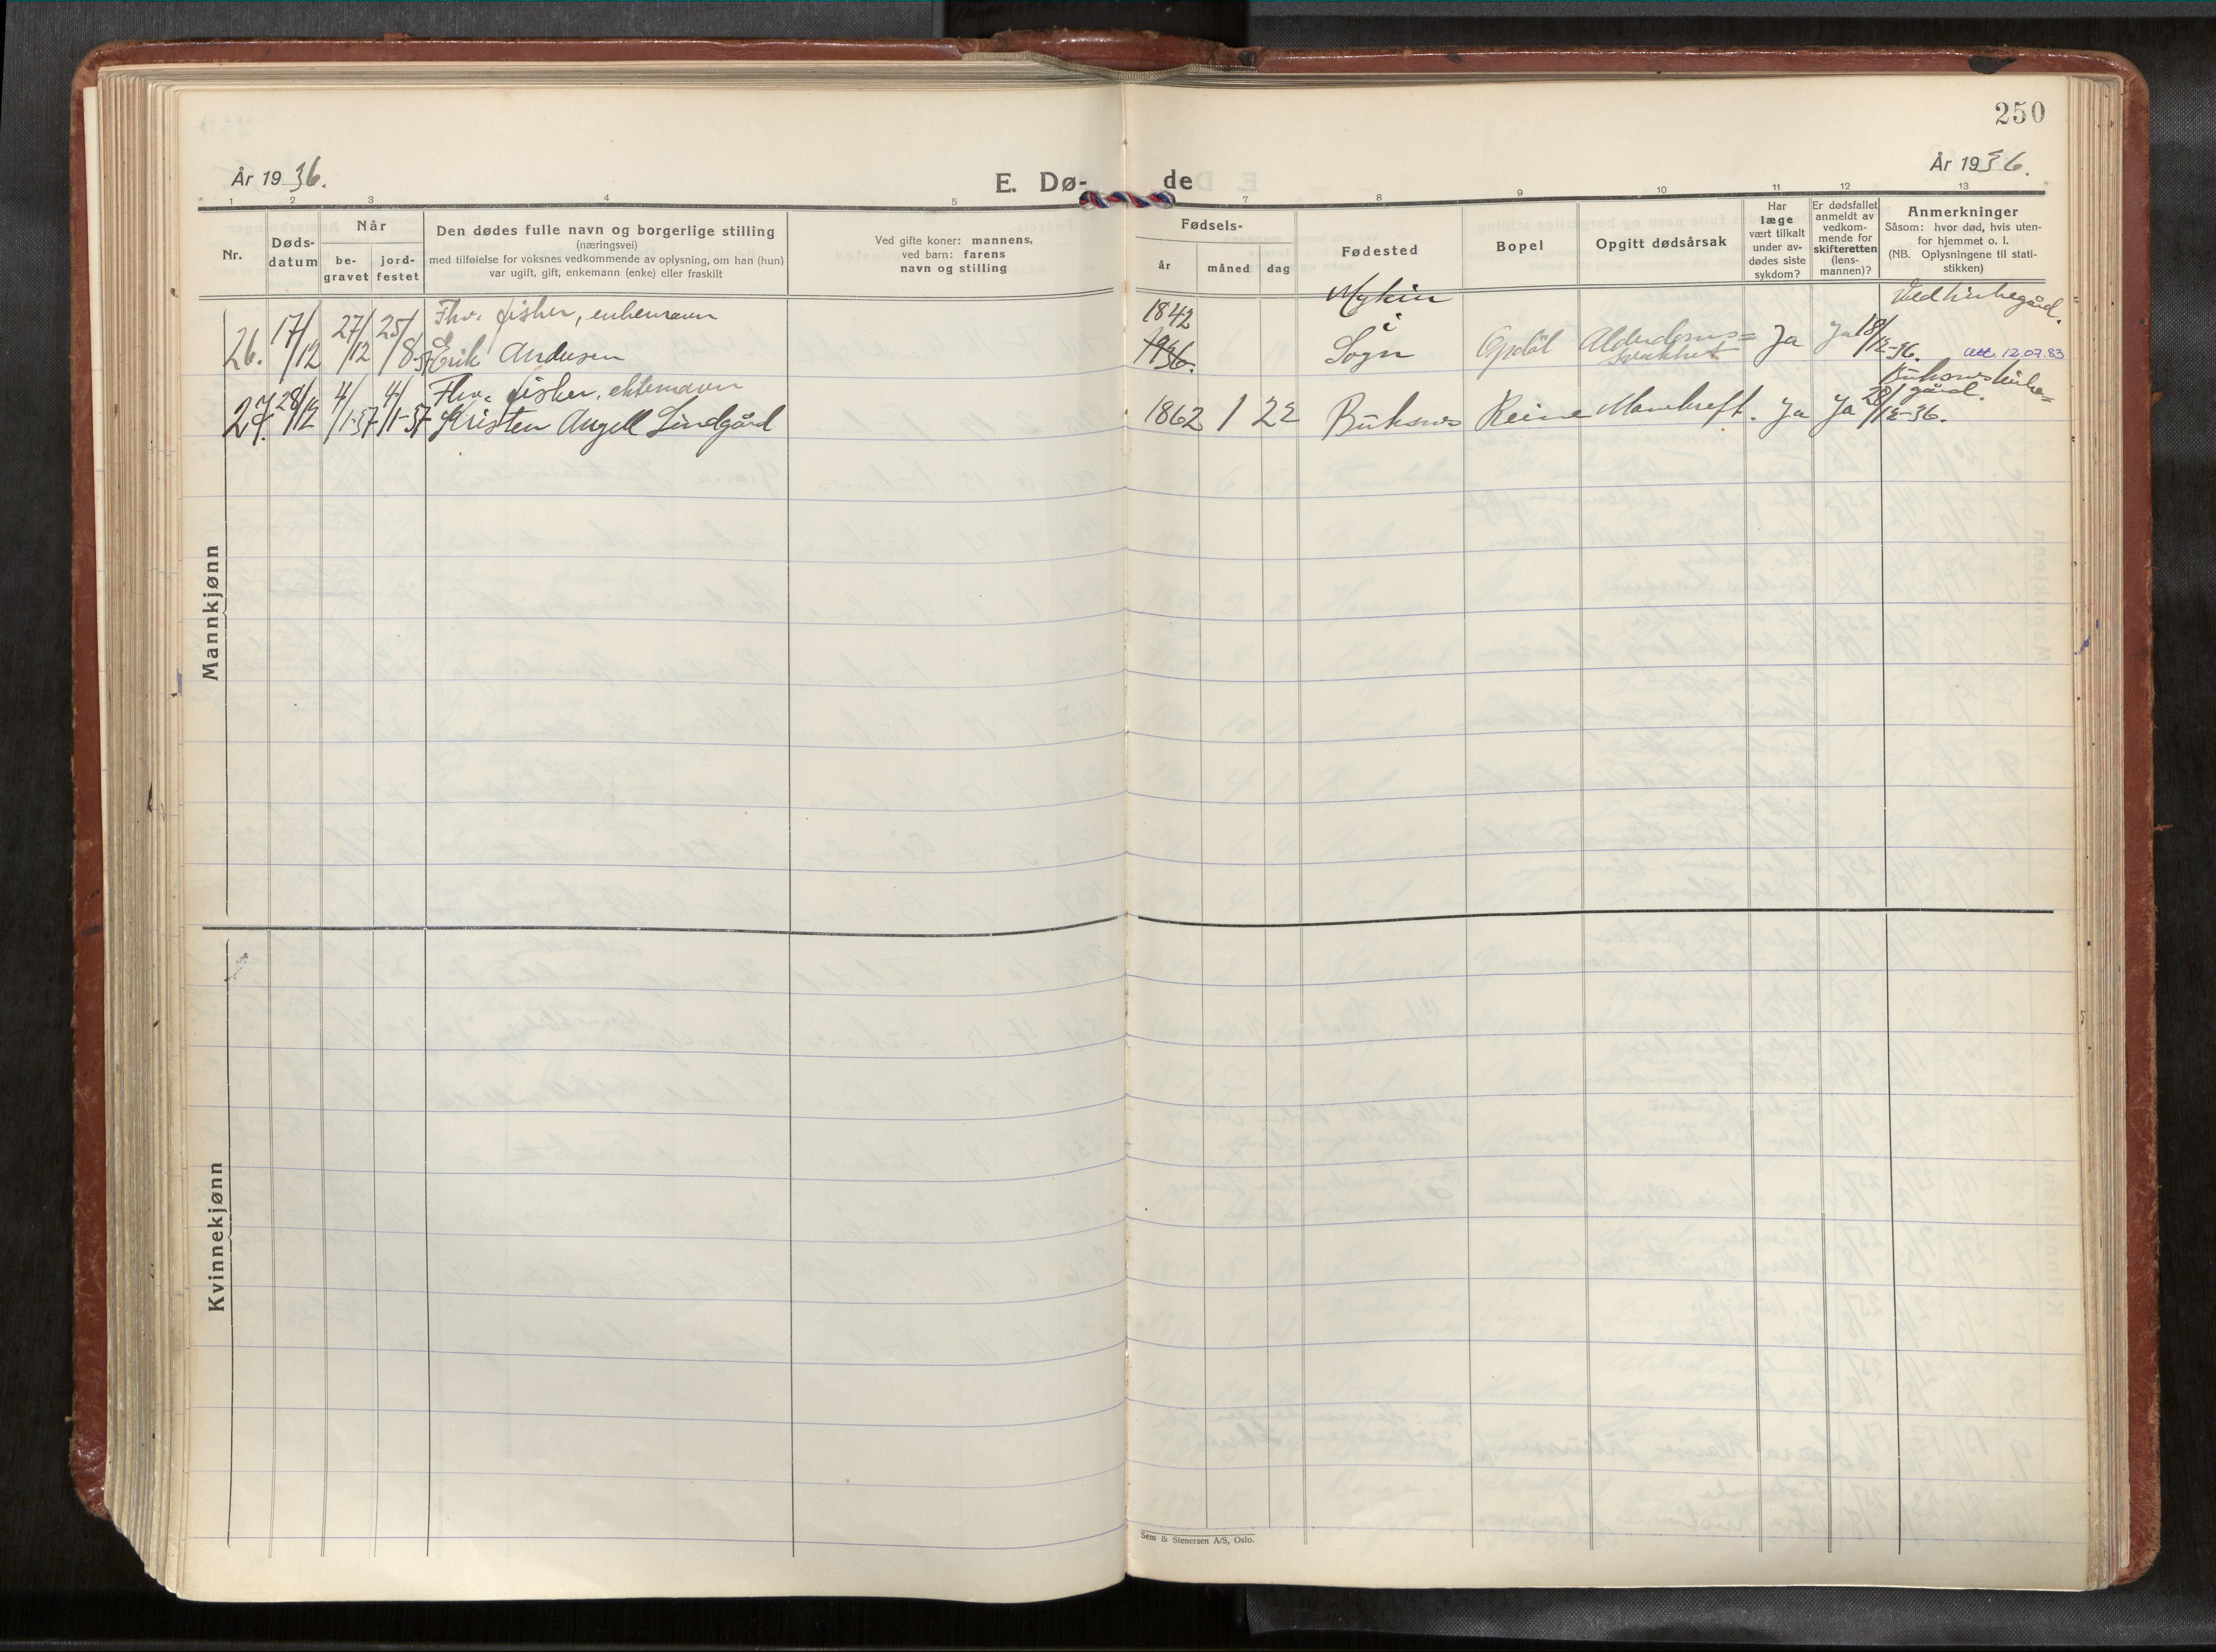 250
År 1936.
År 1936.
E. Dø-
de
1 2 3 4 5 7 8 9 10 11 12 13
Nr.
Døds-
datum
Når
be-
gravet
jord-
festet
Den dødes fulle navn og borgerlige stilling
(næringsvei)
med tilføielse for voksnes vedkommende av oplysning, om han (hun)
var ugift, gift, enkemann (enke) eller fraskilt
Ved gifte koner: mannens,
ved barn: farens
navn og stilling
Fødsels-
år
måned
dag
Fødested
Bopel
Opgitt dødsårsak
Har
læge
vært tilkalt
under av-
dødes siste
sykdom?
Er dødsfallet
anmeldt av
vedkom-
mende for
skifteretten
(lens-
mannen)?
Anmerkninger
Såsom: hvor død, hvis uten-
for hjemmet o. l.
(NB. Oplysningene til stati-
stikken)
Mannkjønn
26. 17/12 27/12 25/8-37
Fhv. fisker, enkemann
Erik Andersen
1842
1936.
i
Sogn
Opdøl
Alderdoms=
svakhet
Ja
Ja 18/12-36.
Ved kirkegård.
utt. 12.07.83
27. 28/12 4/1-37 4/1-37
Fhv. fisker, ektemann
Kristen Angell Lindgård
1862 1 22
Buksnes
Reine
Marekreft.
Ja
Ja 28/12-36.
Buksnes kirke=
gård.
Kvinnekjønn
Sem & Stenersen A/S, Oslo.